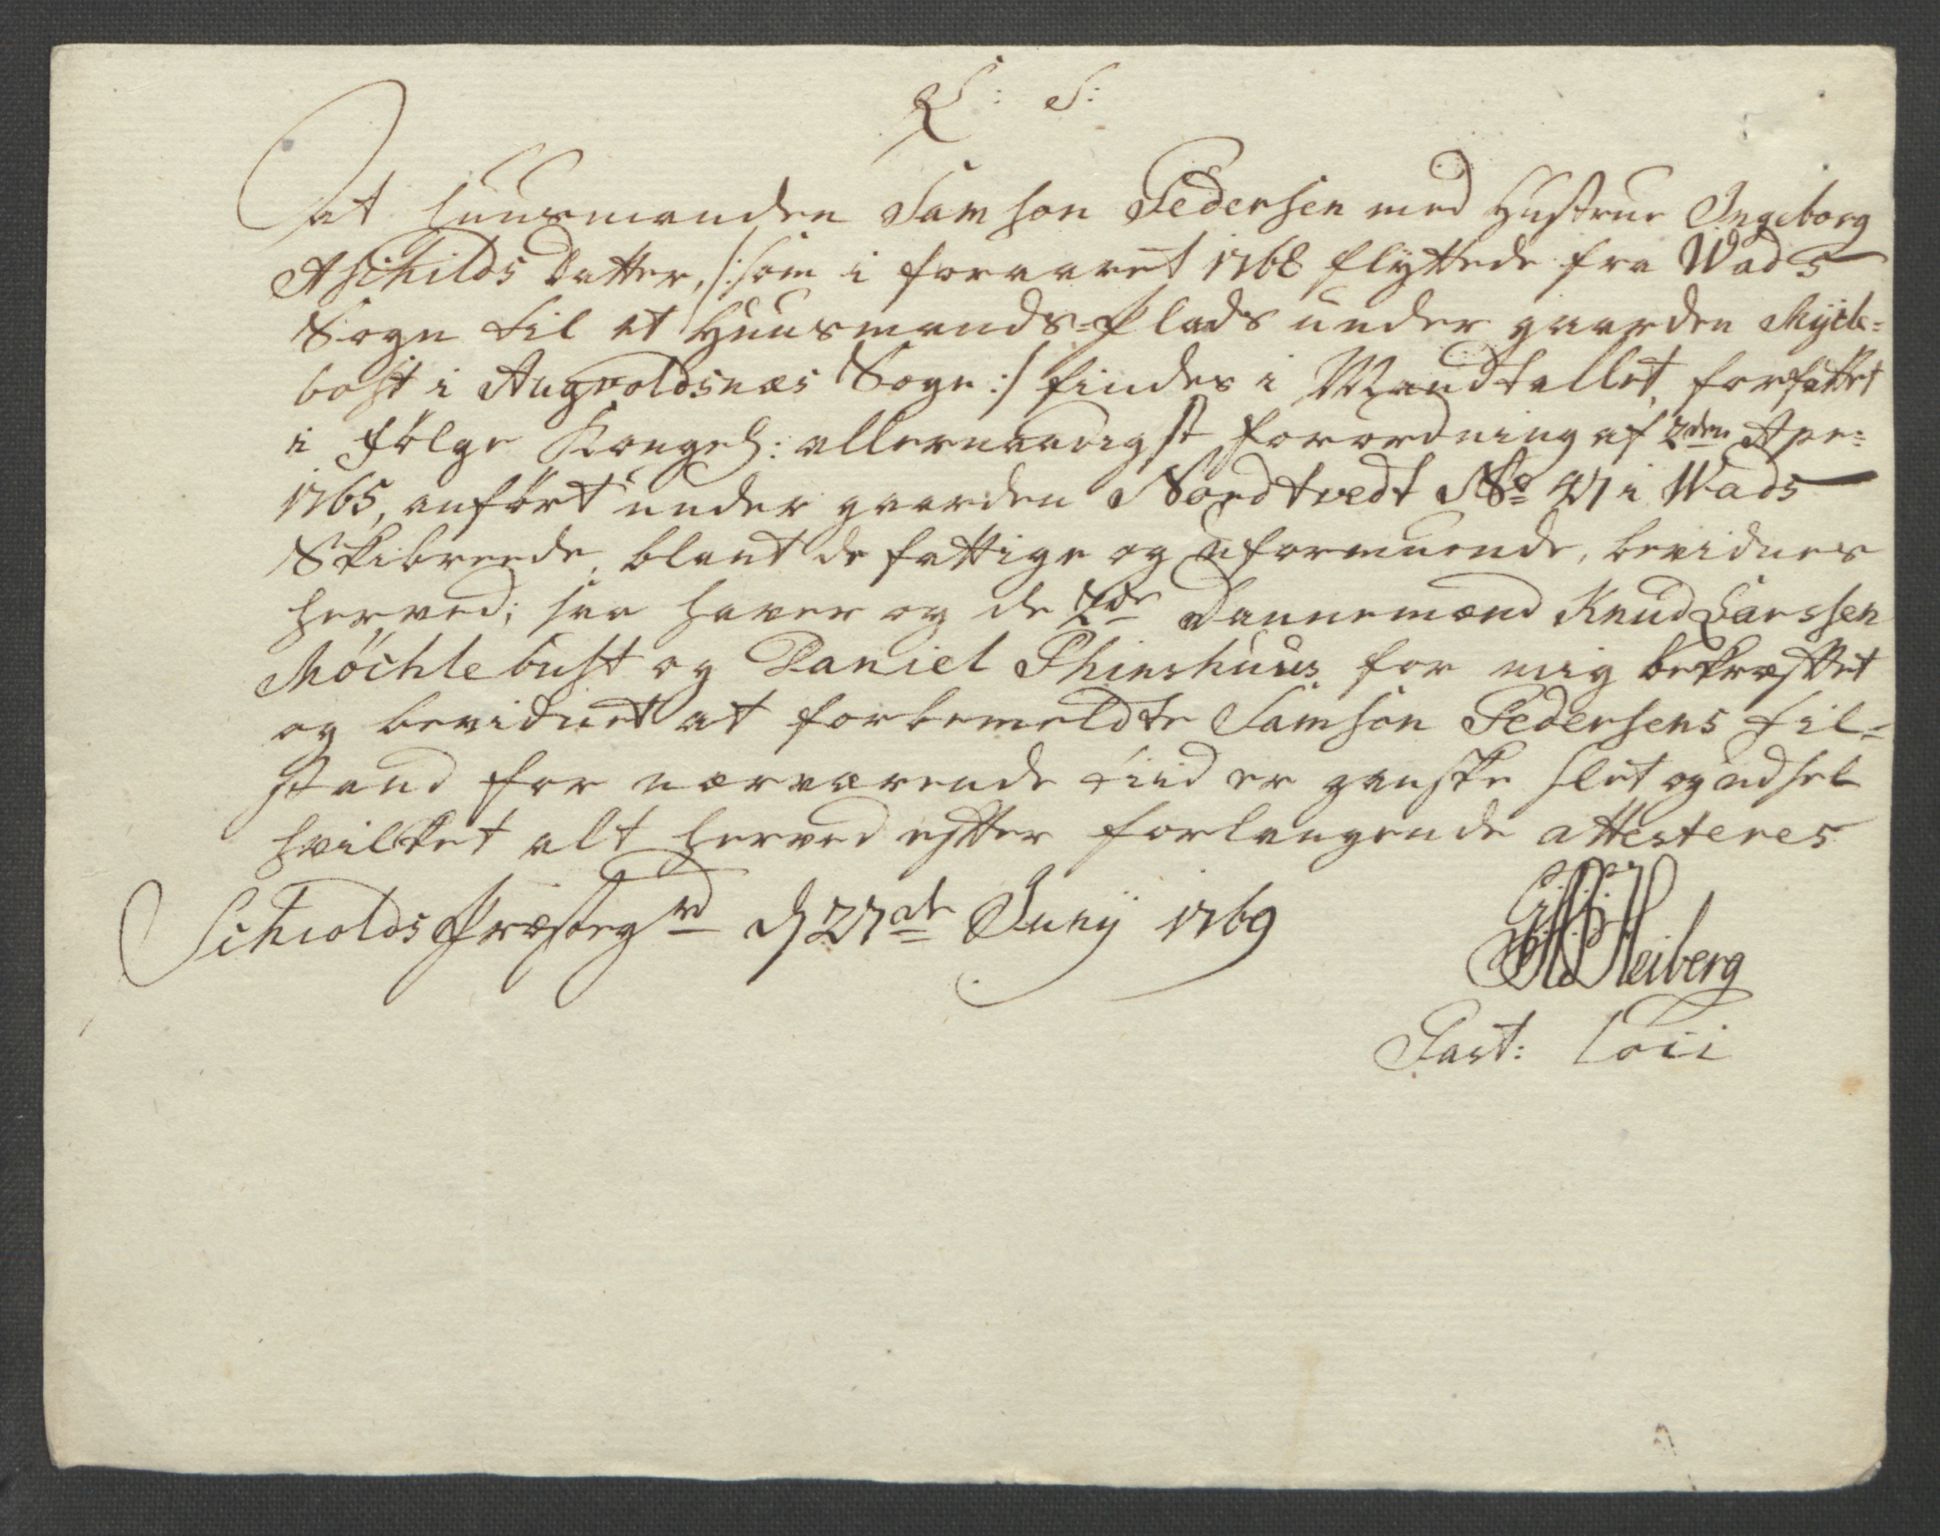 L: S:
At Huusmanden Samson Pedersen med Hustrue Ingeborg
Aschilds Datter, /: som i foraaret 1768 flyttede fra Wads
Sogn til et Huusmands-Plads under gaarden Mycle-
bost i Augvoldsnæs Sogn :/ findes i Mandtallet, forfattet
i følge Kongel: allernaadigst forordning af 2den Apr:
1765, anført under gaarden Nordtvedt No 47 i Wads
Skibreede, blant de fattige og uformuende, bevidnes
herved; saa haver og de 2de Dannemænd Knud Larssen
Møchlebust og Daniel Thinshuus for mig bekræftet
og bevidnet at forbemeldte Samson Pedersens til-
stand for nærværende tiid er ganske slet og udsel
hvilket alt herved efter forlangende attesteres
Schiolds Præstegrd d 27de Juny 1769
Heiberg
Past: loci